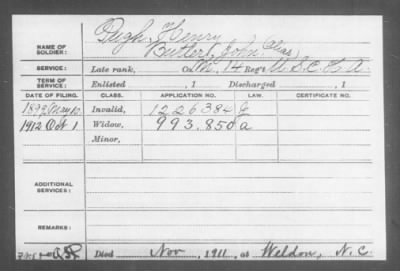 NAME OF SOLDIER: Pugh, Henry
Butler, John (Alias)
SERVICE: Late rank, Co. M, 14 Reg't U.S.C.H.A.
TERM OF SERVICE: Enlisted , 1 Discharged , 1
DATE OF FILING. CLASS. APPLICATION NO. LAW. CERTIFICATE NO.
1899 May 10 Invalid, 1226384 G
1912 Oct 1 Widow, 993.850 a
Minor,
ADDITIONAL SERVICES:
REMARKS:
Died Nov , 1911 at Weldon, N.C.